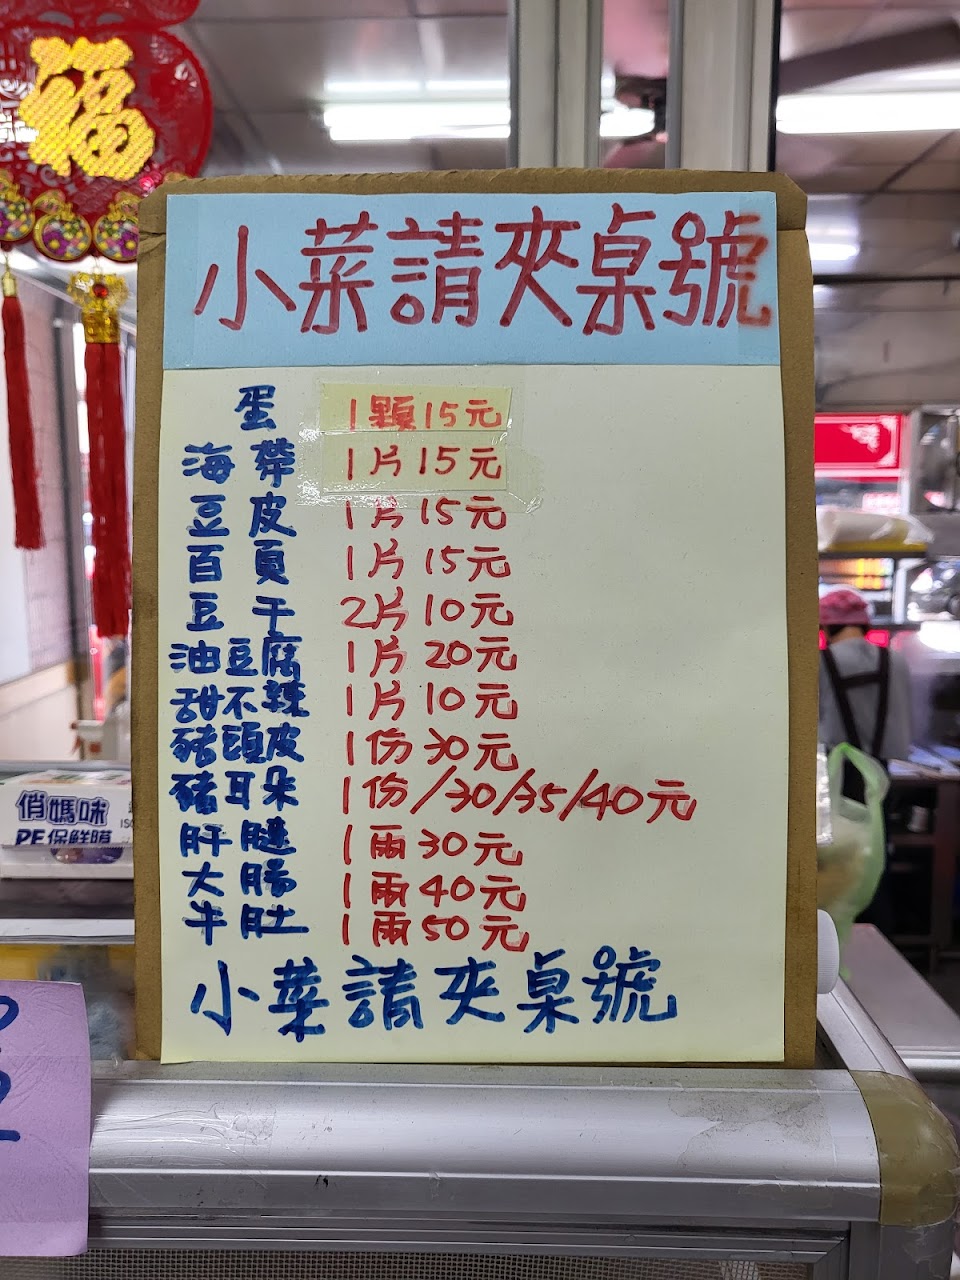 福
小菜請夾桌號
蛋 1顆15元
海帶 1片15元
豆皮 1片15元
百頁 1片15元
豆干 2片10元
油豆腐 1片20元
甜不辣 1片10元
豬頭皮 1份30元
豬耳朵 1份/30/35/40元
肝腱 1兩30元
大腸 1兩40元
牛肚 1兩50元
小菜請夾桌號
俏媽味
PE保鮮膜